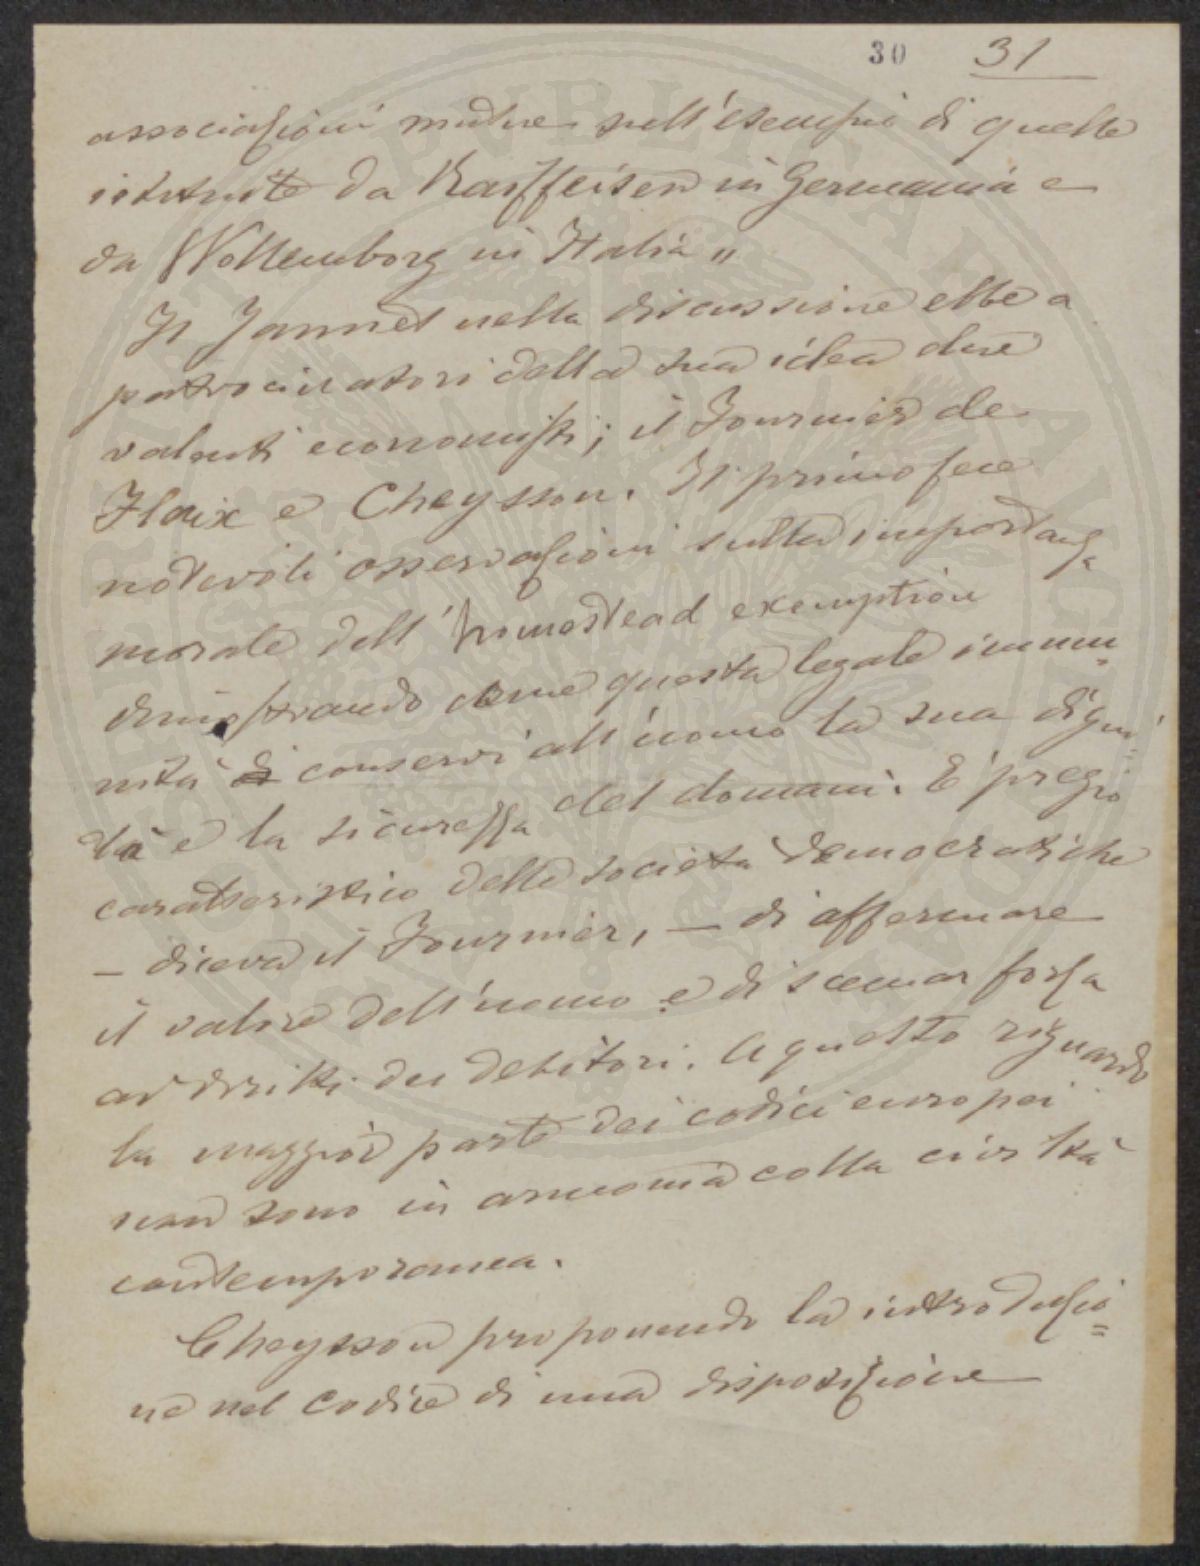 30 31
associazioni mutue sull'esempio di quelle
istituite da Raiffeisen in Germania e
da Wollemborg in Italia „
Il Jannet nella discussione ebbe a
patrocinatori della sua idea due
valenti economisti; il Fournier de
Flaix e Cheysson. Il primo fece
notevoli osservazioni sulla importanza
morale dell'homestead exemption
dimostrando come questa legale immu=
nità di conservi all'uomo la sua digni=
tà e la sicurezza del domani. È pregio
caratteristico delle società democratiche
— diceva il Fournier, — di affermare
il valore dell'uomo e di scemar forza
ai diritti dei debitori. A questo riguardo
la maggior parte dei codici europei
non sono in armonia colla civiltà
contemporanea.
Cheysson proponendo la introduzio=
ne nel codice di una disposizione